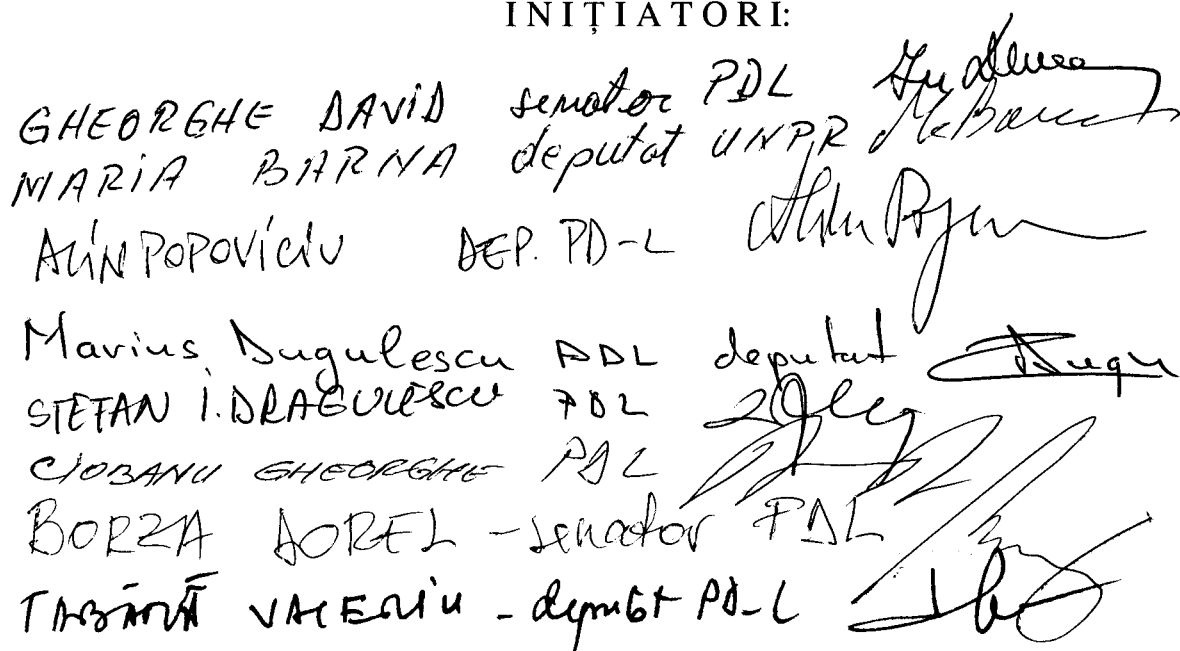 INIȚIATORI:
GHEORGHE DAVID senator PDL
MARIA BARNA deputat UNPR M Barna
ALIN POPOVICIU DEP. PD-L
Marius Dugulescu PDL deputat Dugu
STEFAN I. DRAGULESCU PDL
CIOBANU GHEORGHE PDL
BORZA DOREL - senator PDL
TABĂRĂ VALERIU - deputat PD-L